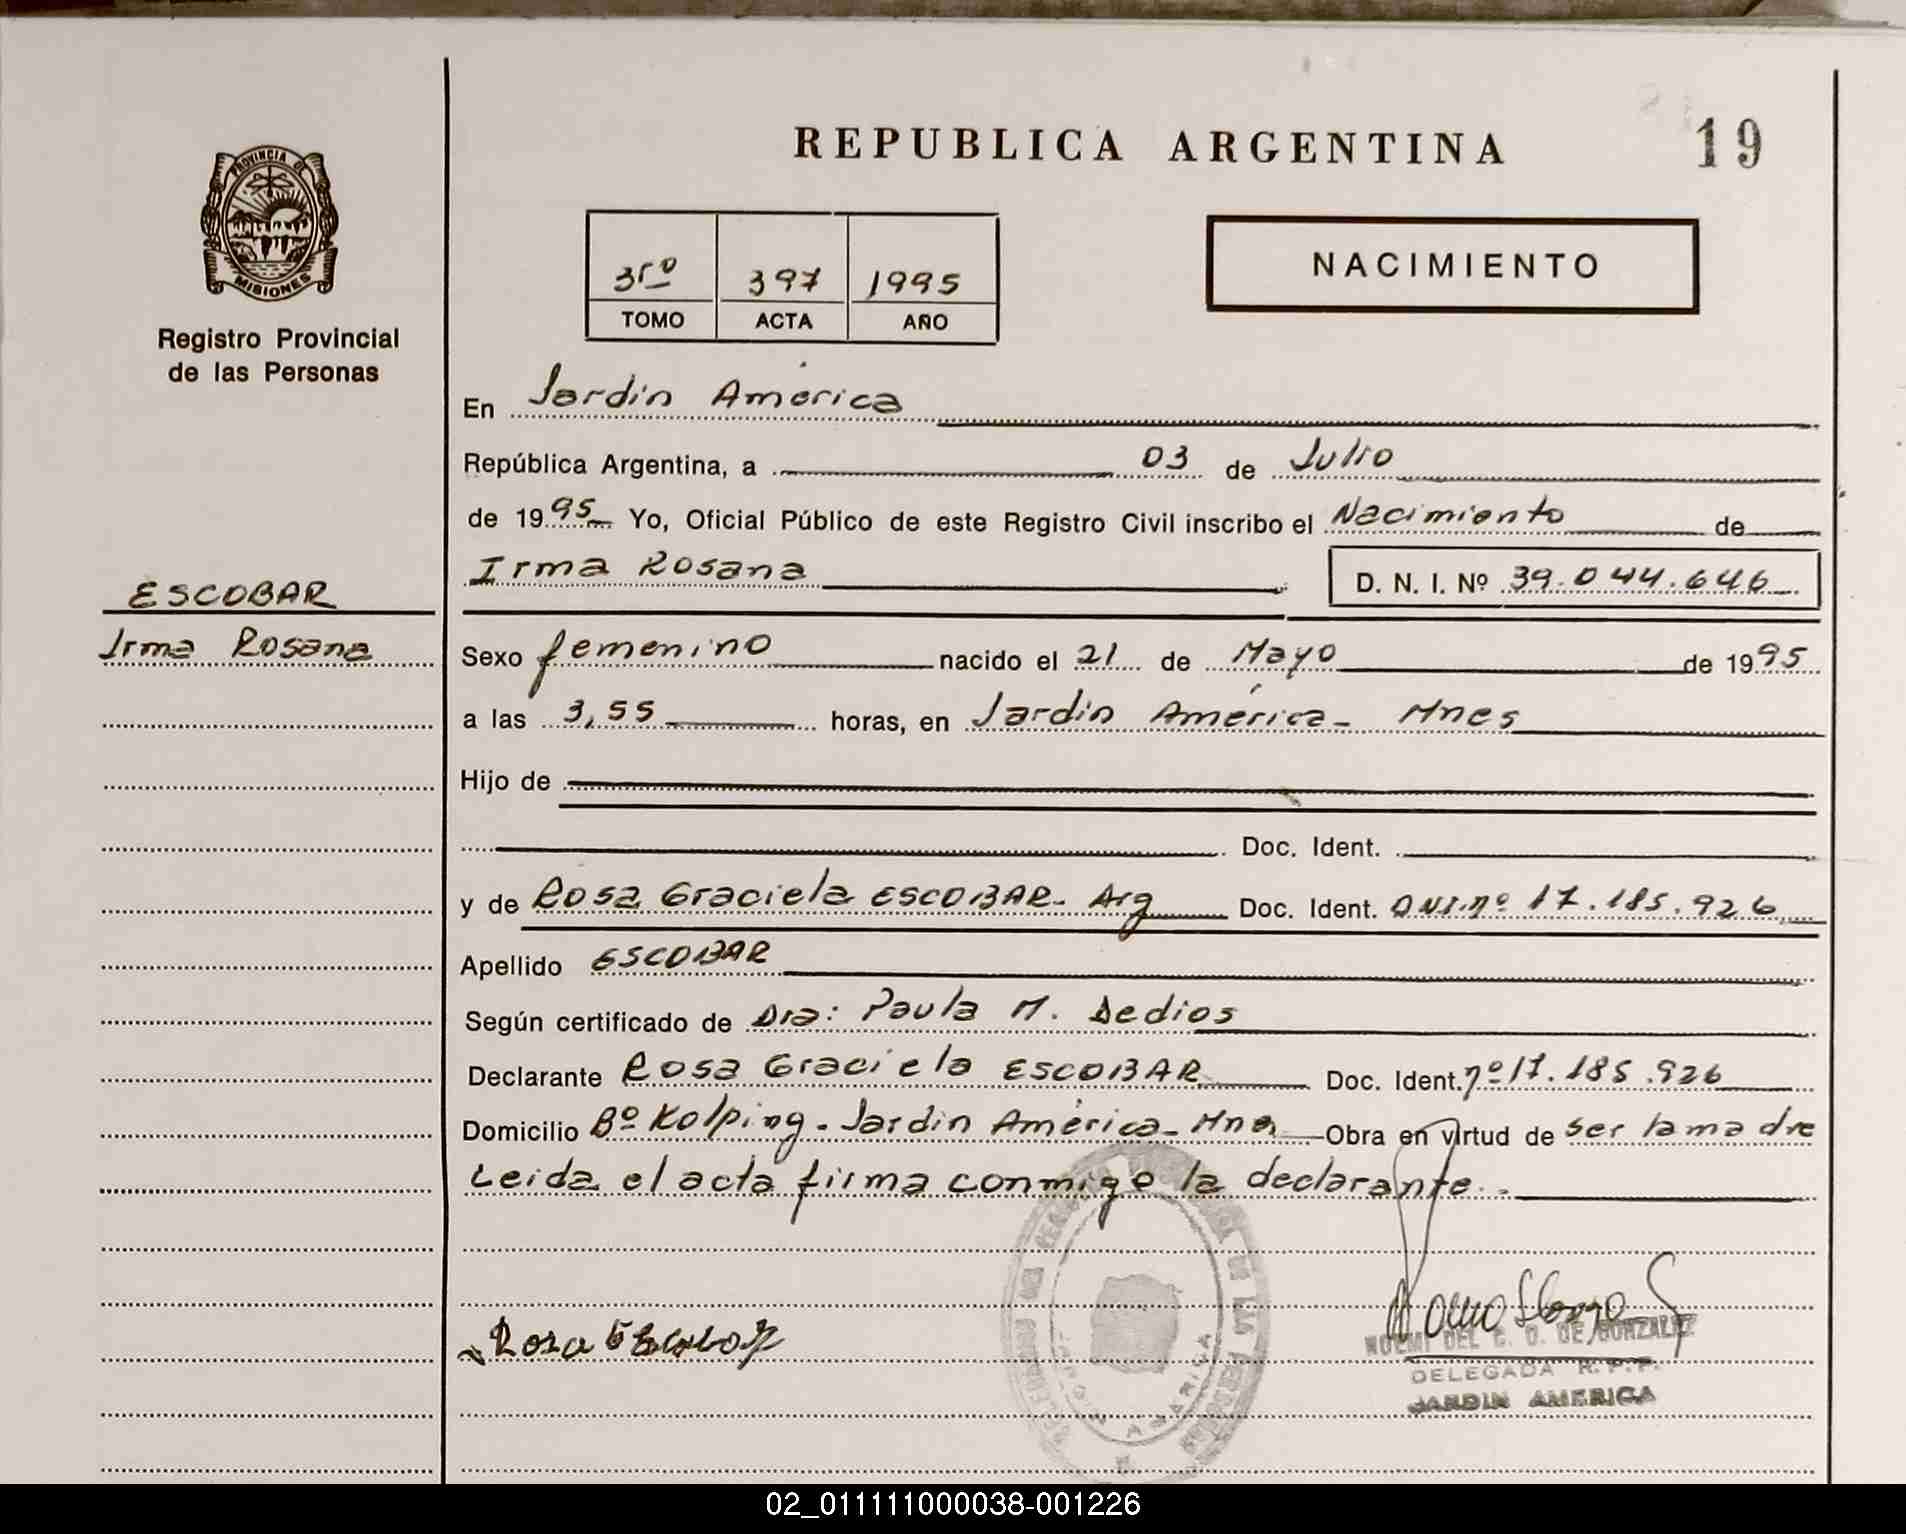 REPUBLICA ARGENTINA
19
PROVINCIA DE
MISIONES
Registro Provincial
de las Personas
3ro 397 1995
TOMO ACTA AÑO
NACIMIENTO
En Jardin América
República Argentina, a 03 de Julio
de 1995 Yo, Oficial Público de este Registro Civil inscribo el Nacimiento de
Irma Rosana D. N. I. Nº 39.044.646
ESCOBAR
Irma Rosana
Sexo femenino nacido el 21 de Mayo de 1995
a las 3,55 horas, en Jardin América - Mnes
Hijo de
Doc. Ident.
y de Rosa Graciela ESCOBAR - Arg Doc. Ident. DNI.nº 17.185.926
Apellido ESCOBAR
Según certificado de Dra: Paula M. Dedios
Declarante Rosa Graciela ESCOBAR Doc. Ident. nº 17.185.926
Domicilio Bº Kolping - Jardin América - Mnes Obra en virtud de ser la madre
Leida el acta firma conmigo la declarante.
Rosa Escobar
NOEMI DEL C. D. DE GONZALEZ
DELEGADA R.P.P.
JARDIN AMERICA
JARDIN AMERICA
02_011111000038-001226